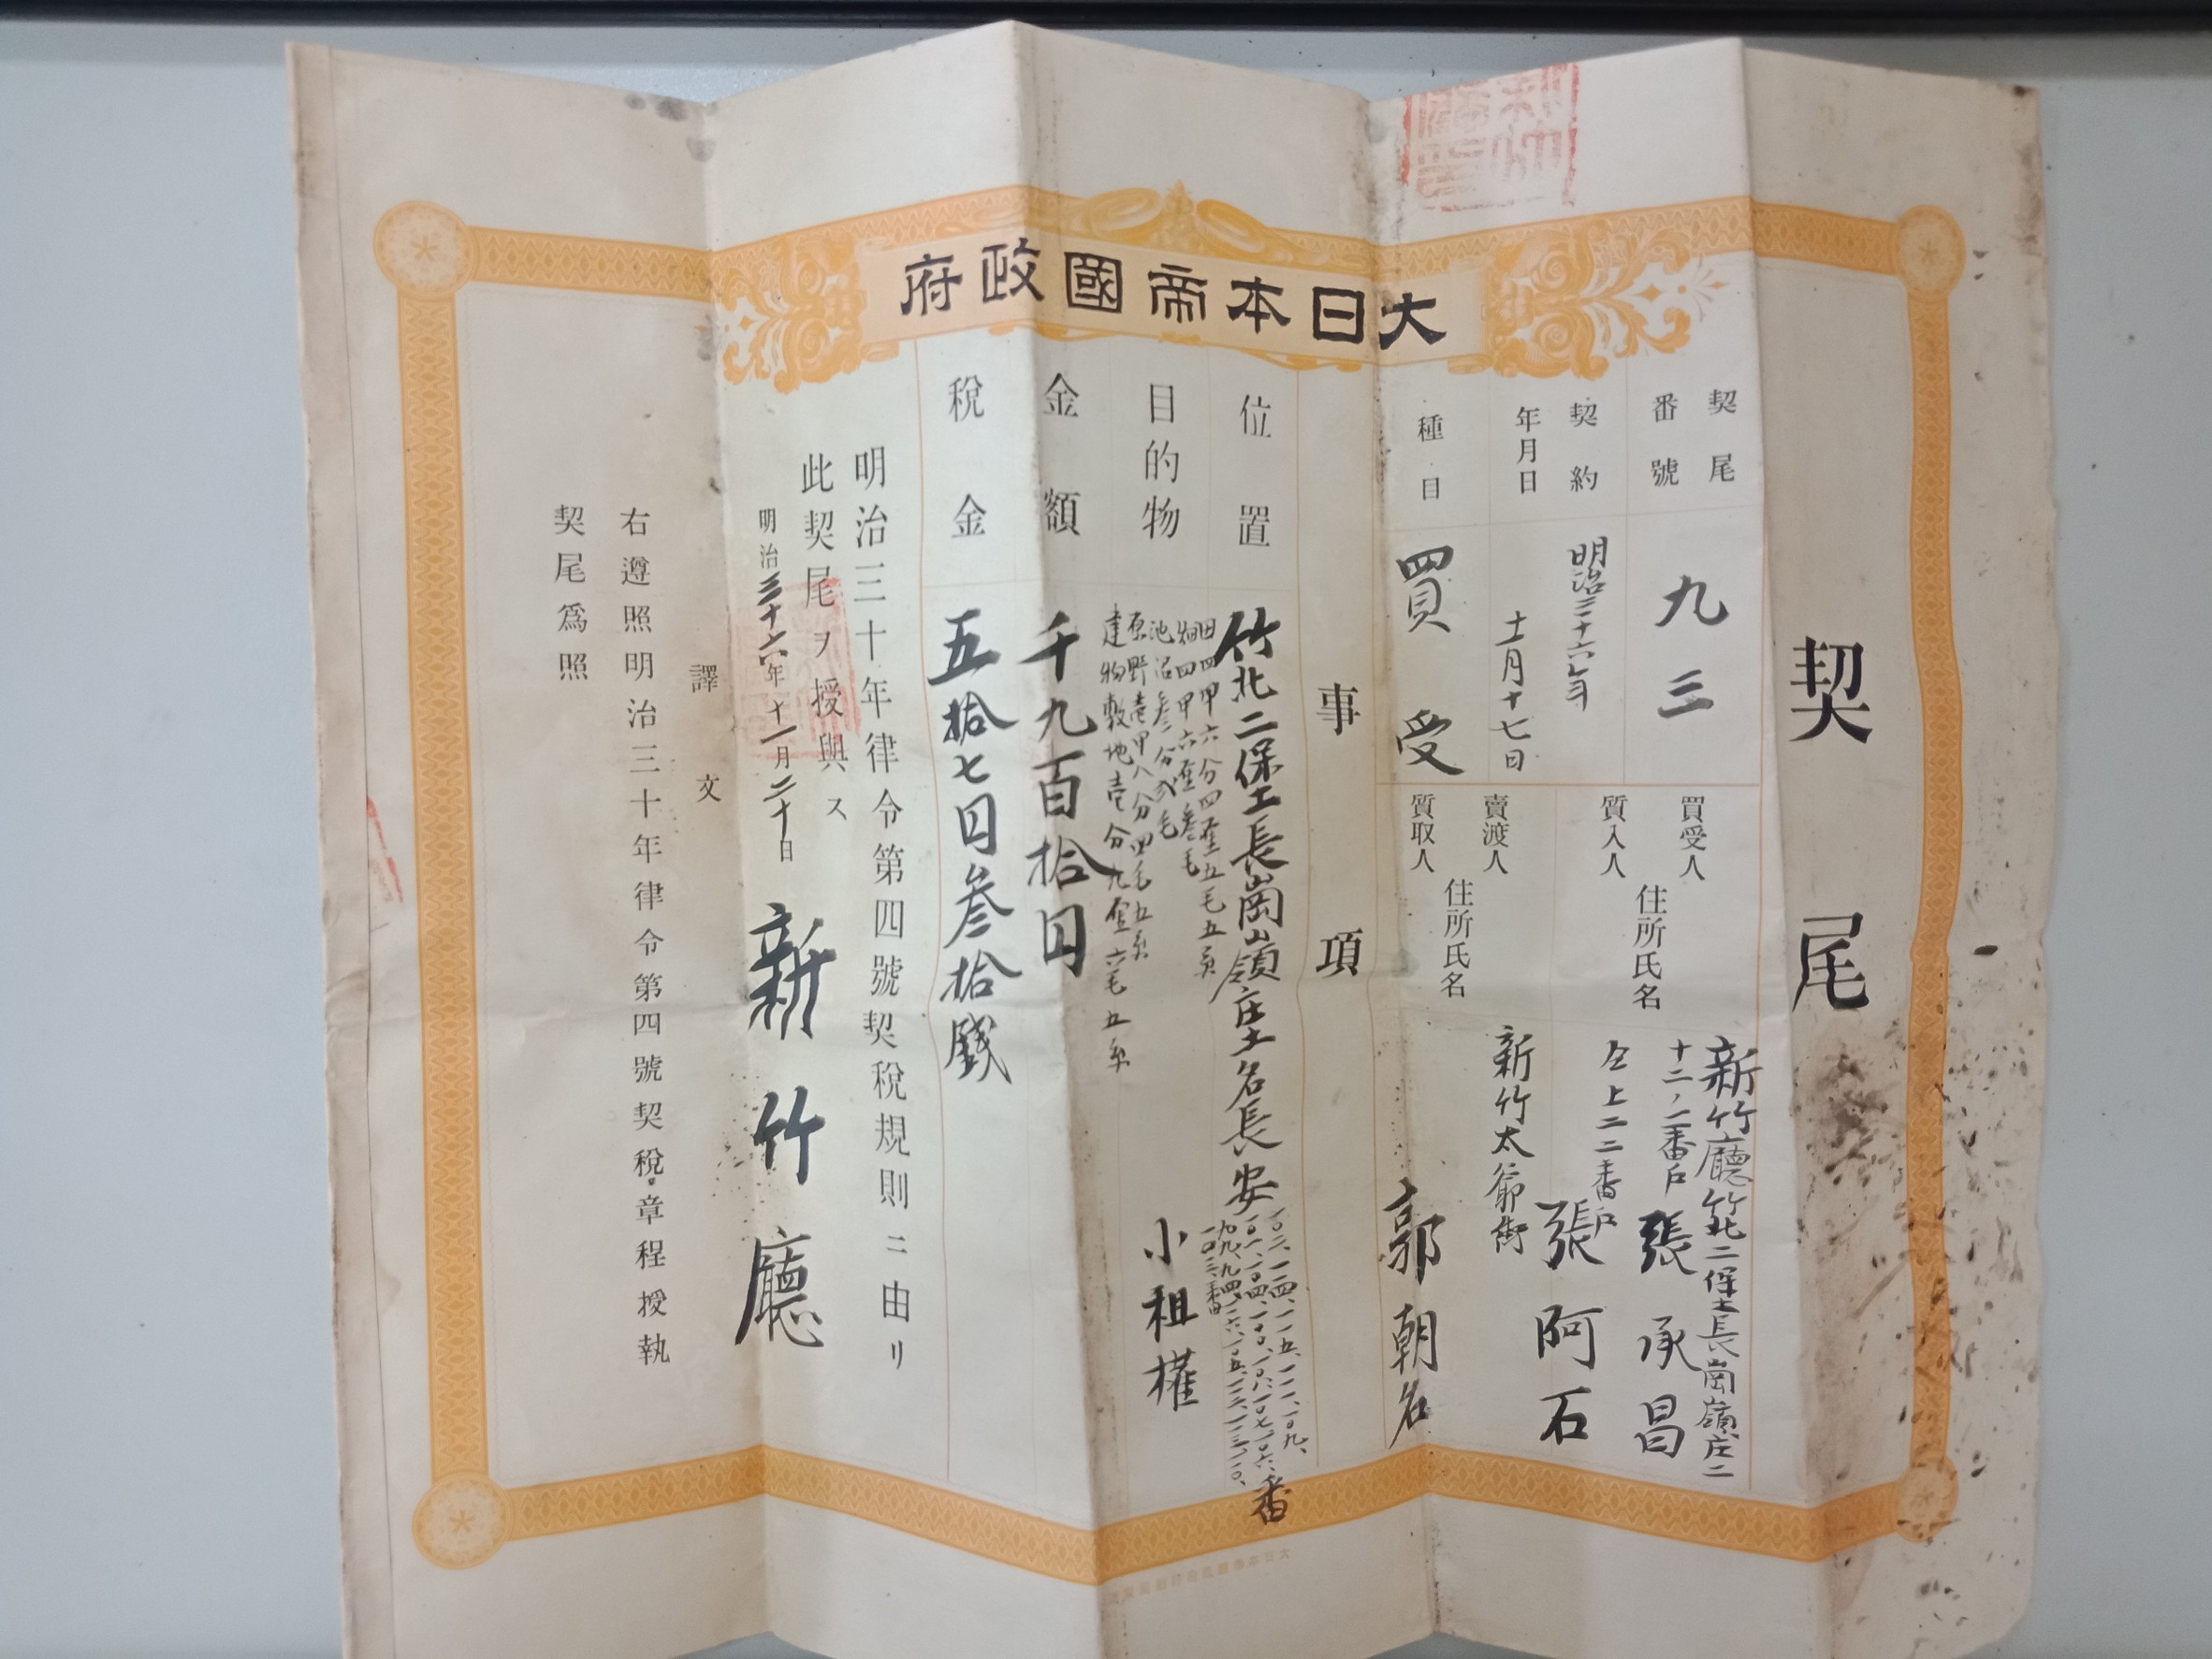 大日本帝國政府
契尾
契尾番號
九三
契約年月日
明治三十六年
十一月十七日
種目
買受
買受人
質入人
住所氏名
新竹廳竹北二保土長崗嶺庄二
十二ノ二番戶
張承昌
仝上二二番戶
張阿石
賣渡人
質取人
住所氏名
新竹太爺街
郭朝名
事項
位置
竹北二保土長崗嶺庄土名長安
番
目的物
田四甲六分四厘五毛五糸
畑四甲六厘叁毛
池沼叁分弍毛
原野壱甲八分四毛五糸
建物敷地壱分九厘六毛五糸
小租權
金額
千九百拾円
稅金
五拾七円叁拾錢
明治三十年律令第四號契稅規則ニ由リ
此契尾ヲ授與ス
明治三十六年十一月二十日
新竹廳
譯文
右遵照明治三十年律令第四號契稅章程授執
契尾爲照